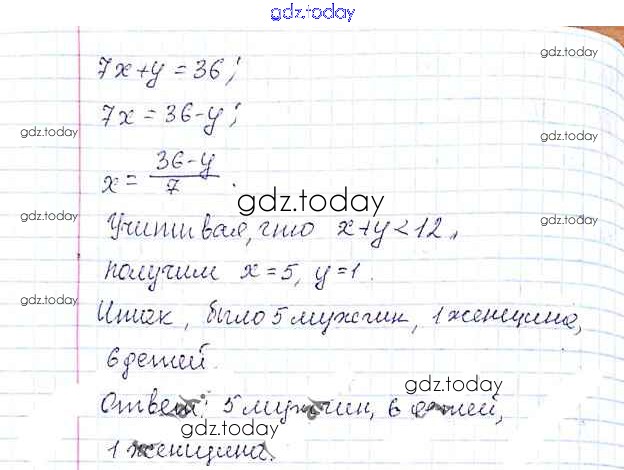 gdz.today
7x+y=36;
gdz.today
7x=36-y;
gdz.today
gdz.today
x=\frac{36-y}{7}.
gdz.today
Учитывая, что x+y<12,
gdz.today
получим x=5, y=1.
gdz.today
Итак, было 5 мужчин, 1 женщина,
gdz.today
6 детей.
gdz.today
Ответ: 5 мужчин, 6 детей,
gdz.today
1 женщина.